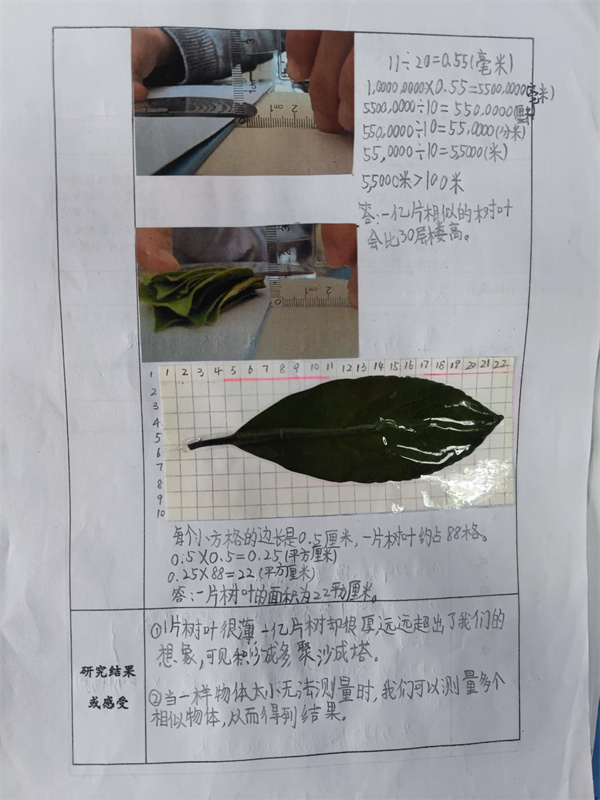 11÷20=0.55(毫米)
1,0000,0000×0.55=5500,0000(毫米)
5500,0000÷10=550,0000(厘米)
550,0000÷10=55,0000(分米)
55,0000÷10=5,5000(米)
5,5000米>100米
答:一亿片相似的树叶
会比30层楼高。
1 1 2 3 4 5 6 7 8 9 10 11 12 13 14 15 16 17 18 19 20 21 22
2
3
4
5
6
7
8
9
10
每个小方格的边长是0.5厘米,一片树叶约占88格。
0.5×0.5=0.25(平方厘米)
0.25×88=22(平方厘米)
答:一片树叶的面积为22平方厘米。
研究结果
或感受
①1片树叶很薄一亿片树却很厚远远超出了我们的
想象,可见积沙成多聚沙成塔。
②当一样物体太小无法测量时,我们可以测量多个
相似物体,从而得到结果。